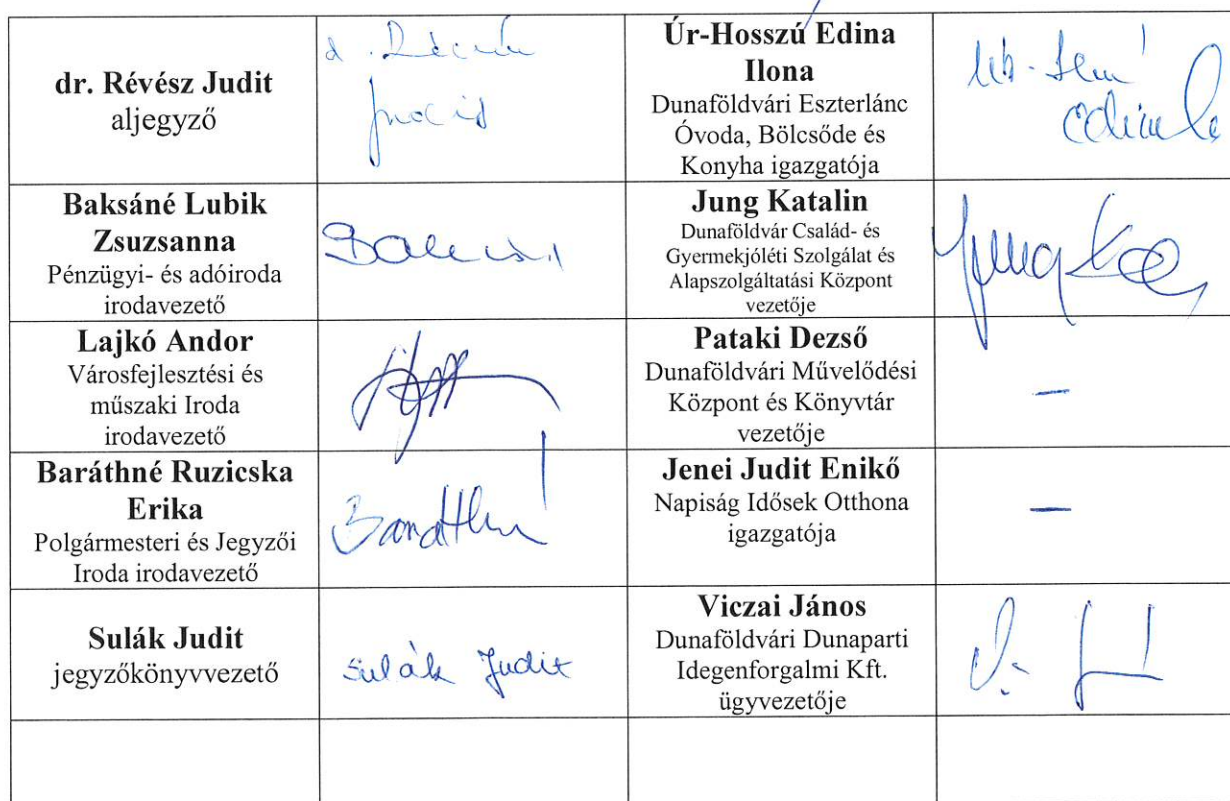 dr. Révész Judit
aljegyző
Úr-Hosszú Edina
Ilona
Dunaföldvári Eszterlánc
Óvoda, Bölcsőde és
Konyha igazgatója
Baksáné Lubik
Zsuzsanna
Pénzügyi- és adóiroda
irodavezető
Jung Katalin
Dunaföldvár Család- és
Gyermekjóléti Szolgálat és
Alapszolgáltatási Központ
vezetője
Lajkó Andor
Városfejlesztési és
műszaki Iroda
irodavezető
Pataki Dezső
Dunaföldvári Művelődési
Központ és Könyvtár
vezetője
–
Baráthné Ruzicska
Erika
Polgármesteri és Jegyzői
Iroda irodavezető
Jenei Judit Enikő
Napiság Idősek Otthona
igazgatója
–
Sulák Judit
jegyzőkönyvvezető
Sulák Judit
Viczai János
Dunaföldvári Dunaparti
Idegenforgalmi Kft.
ügyvezetője